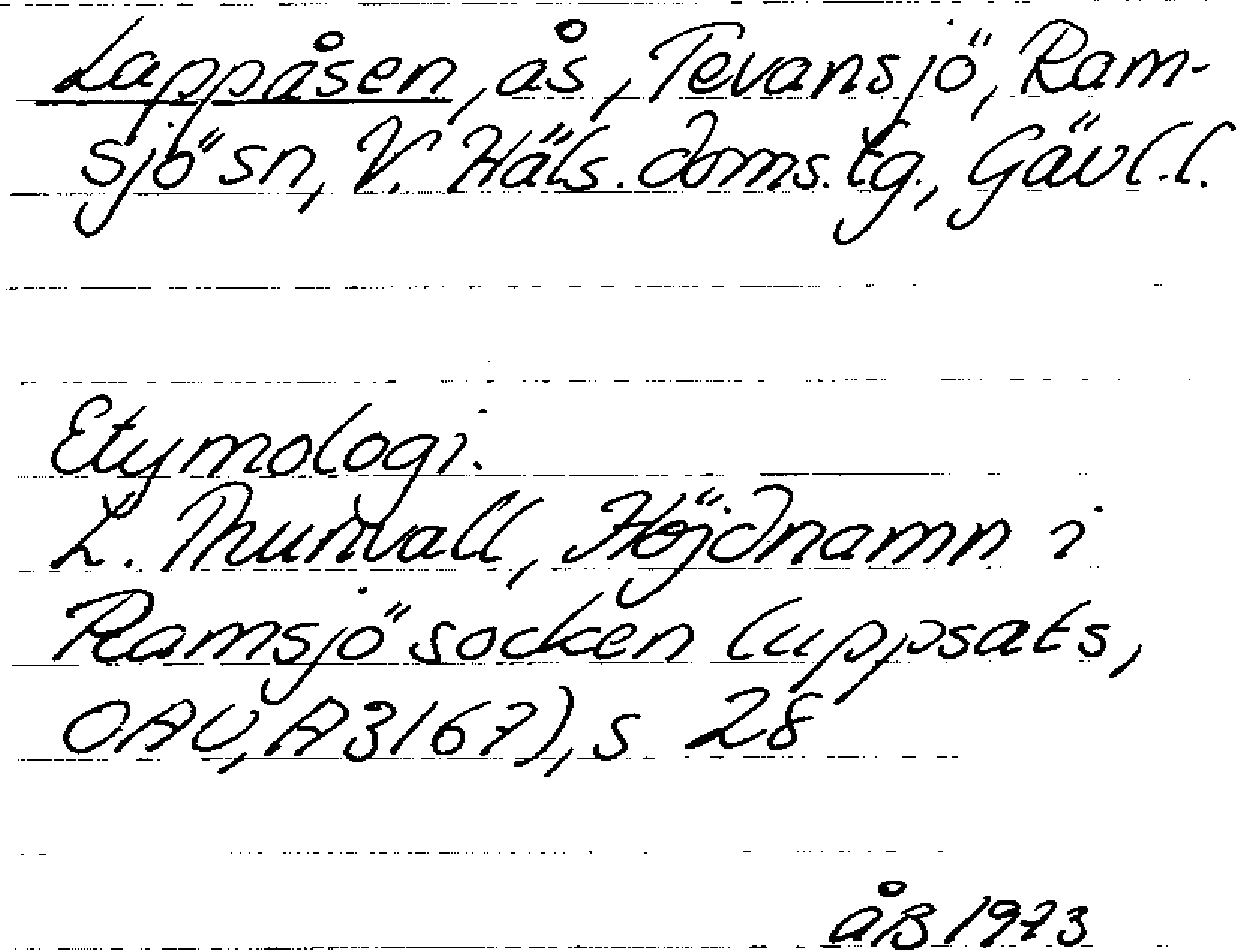 Lappåsen, ås, Tevansjö, Ram-
sjö sn, V. Häls. doms. tg., Gävl. l.
Etymologi.
L. Thunvall, Höjdnamn i
Ramsjö socken (uppsats,
OAU, A3167), s 28
ÅB 1973